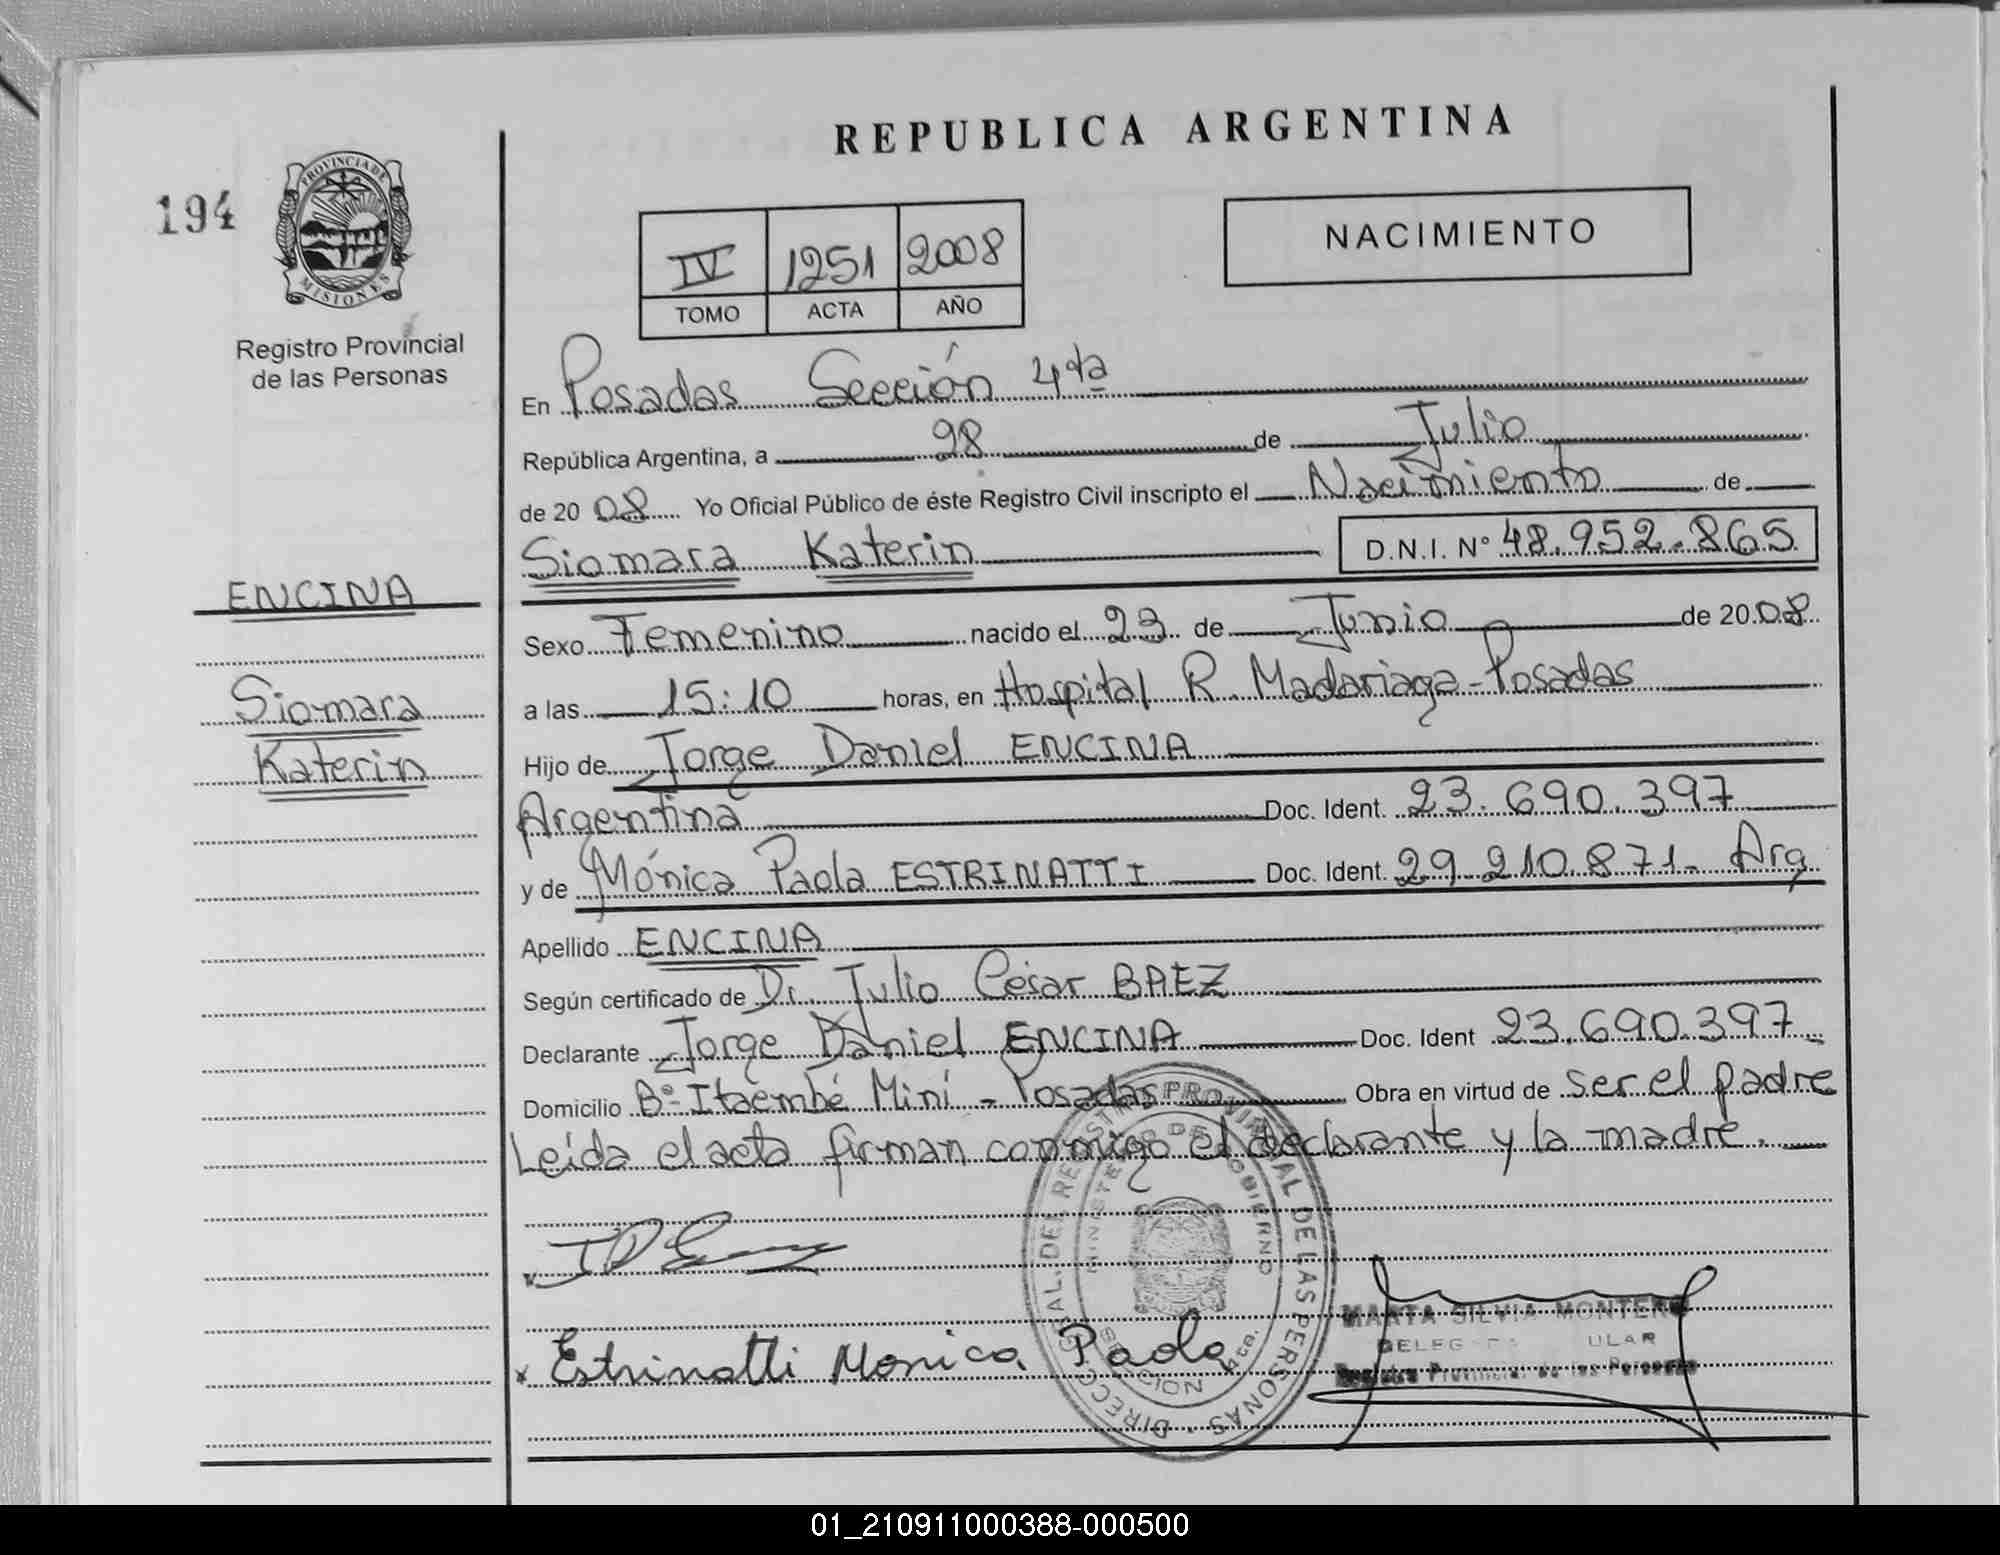 REPUBLICA ARGENTINA
194
PROVINCIA DE MISIONES
Registro Provincial
de las Personas
IV 1251 2008
TOMO ACTA AÑO
NACIMIENTO
En Posadas Sección 4ta
República Argentina, a 08 de Julio
de 2008 Yo Oficial Público de éste Registro Civil inscripto el Nacimiento de
Siomara Katerin D.N.I. N° 48.952.865
ENCINA
Siomara
Katerin
Sexo Femenino nacido el 23 de Junio de 2008
a las 15:10 horas, en Hospital R. Madariaga - Posadas
Hijo de Jorge Daniel ENCINA
Argentina Doc. Ident. 23.690.397
y de Mónica Paola ESTRINATTI Doc. Ident. 29.210.871- Arg
Apellido ENCINA
Según certificado de Dr. Julio César BAEZ
Declarante Jorge Daniel ENCINA Doc. Ident 23.690.397
Domicilio B° Itaembé Miní - Posadas Obra en virtud de ser el padre
Leída el acta firman conmigo el declarante y la madre.
Estrinatti Monica Paola
MARTA SILVIA MONTERO
Registro Provincial de las Personas
DIRECC. GRAL. DEL REGISTRO PROVINCIAL DE LAS PERSONAS
MINISTERIO DE GOBIERNO
01_210911000388-000500